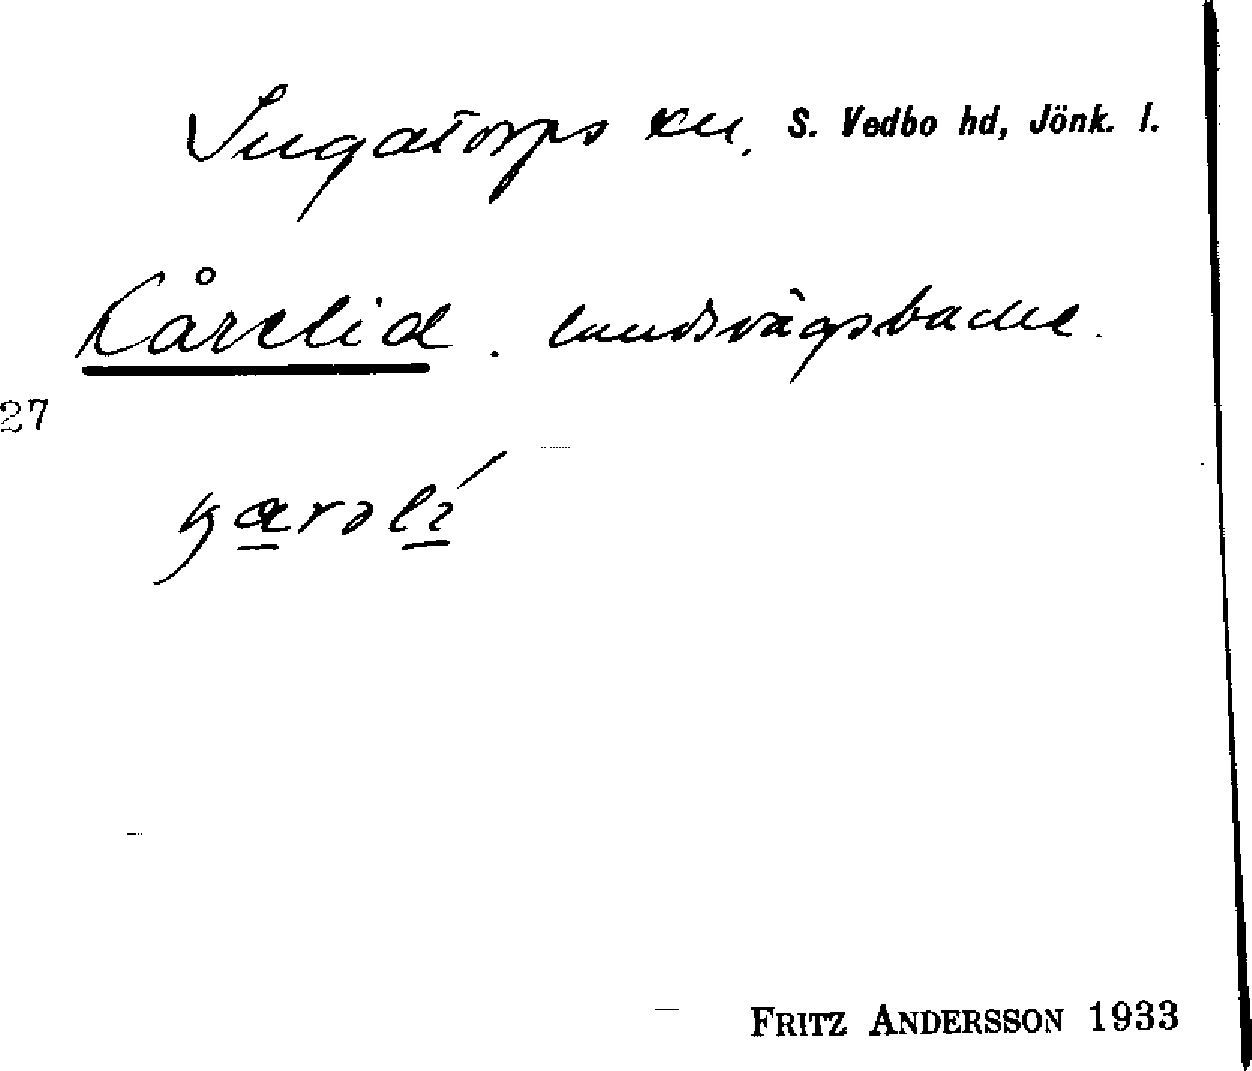 Ingatorps sn. S. Vedbo hd, Jönk. l.
Kårelid. landsvägsbacke.
27
FRITZ ANDERSSON 1933